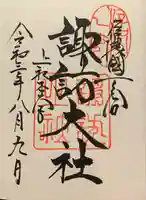 信濃國一宮
諏訪大社
上社本宮
令和三年八月九日